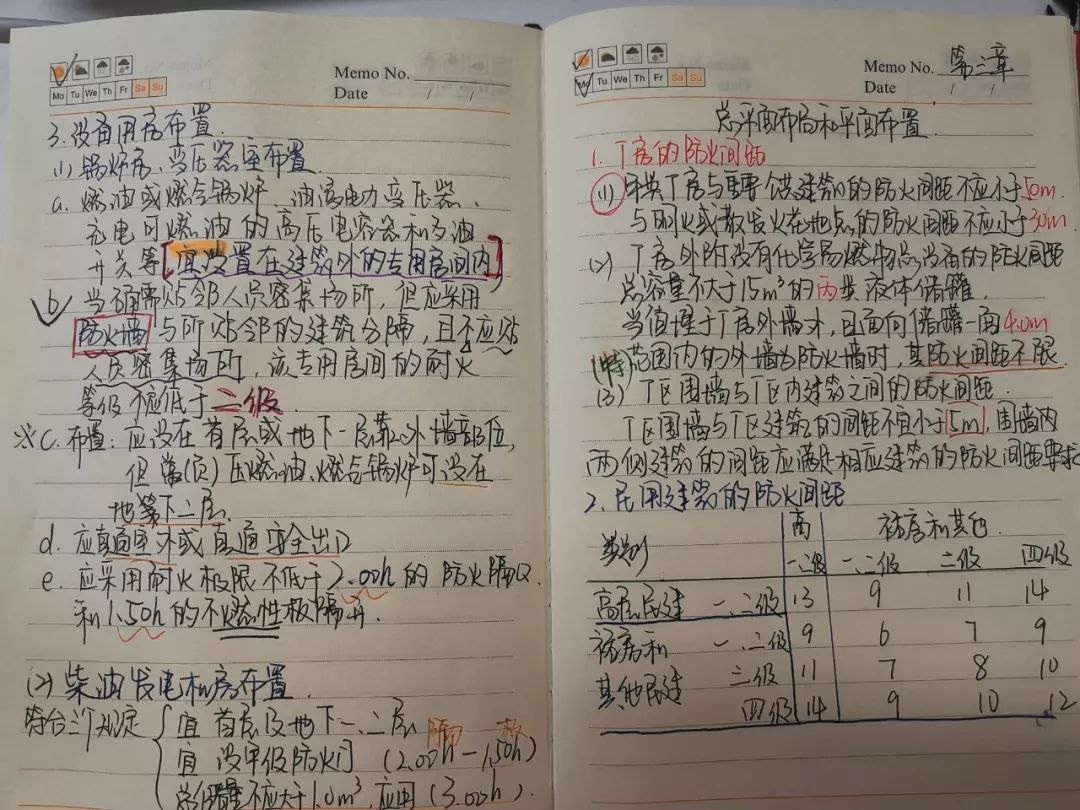 Memo No.
Mo Tu We Th Fr Sa Su
Date / /
3.设备用房布置.
(1)锅炉房、变压器室布置.
a.燃油或燃气锅炉、油浸电力变压器、
充电可燃油的高压电容器和多油
开关等宜设置在建筑外的专用房间内
b 当确需贴邻人员密集场所,但应采用
防火墙与所贴邻的建筑分隔,且不应贴
人员密集场所,该专用房间的耐火
等级不应低于二级.
※C.布置:应设在首层或地下一层靠外墙部位,
但常(负)压燃油、燃气锅炉可设在
地下二层.
d.应直通室外或直通安全出口
e.应采用耐火极限不低于2.00h的防火隔
和1.50h的不燃性板隔开.
(2)柴油发电机房布置.
符合三个规定
宜 首层及地下一、二层
隔 板
宜 设甲级防火门 (2.00h-1.50h)
总储量不应大于1.0m³,应用(3.00h).
Memo No. 第二章
Mo Tu We Th Fr Sa Su
Date / /
总平面布局和平面布置.
1.厂房的防火间距
(1)甲类厂房与重要公共建筑的防火间距不应小于50m.
与明火或散发火花地点的防火间距不应小于30m
(2)厂房外附设有化学易燃物品设备的防火间距
总容量不大于15m³的丙类液体储罐.
当值埋于厂房外墙外,且面向储罐一面4.0m
(特)范围内的外墙为防火墙时,其防火间距不限.
(3)厂区围墙与厂区内建筑之间的防火间距.
厂区围墙与厂区建筑的间距不宜小于5m,围墙内
两侧建筑的间距应满足相应建筑的防火间距要求
2.民用建筑的防火间距
类别 高 裙房和其他.
一、二级 一、二级 二级 四级
高层民建 一、二级 13 9 11 14
裙房和 一、二级 9 6 7 9
其他民建 三级 11 7 8 10
四级 14 9 10 12